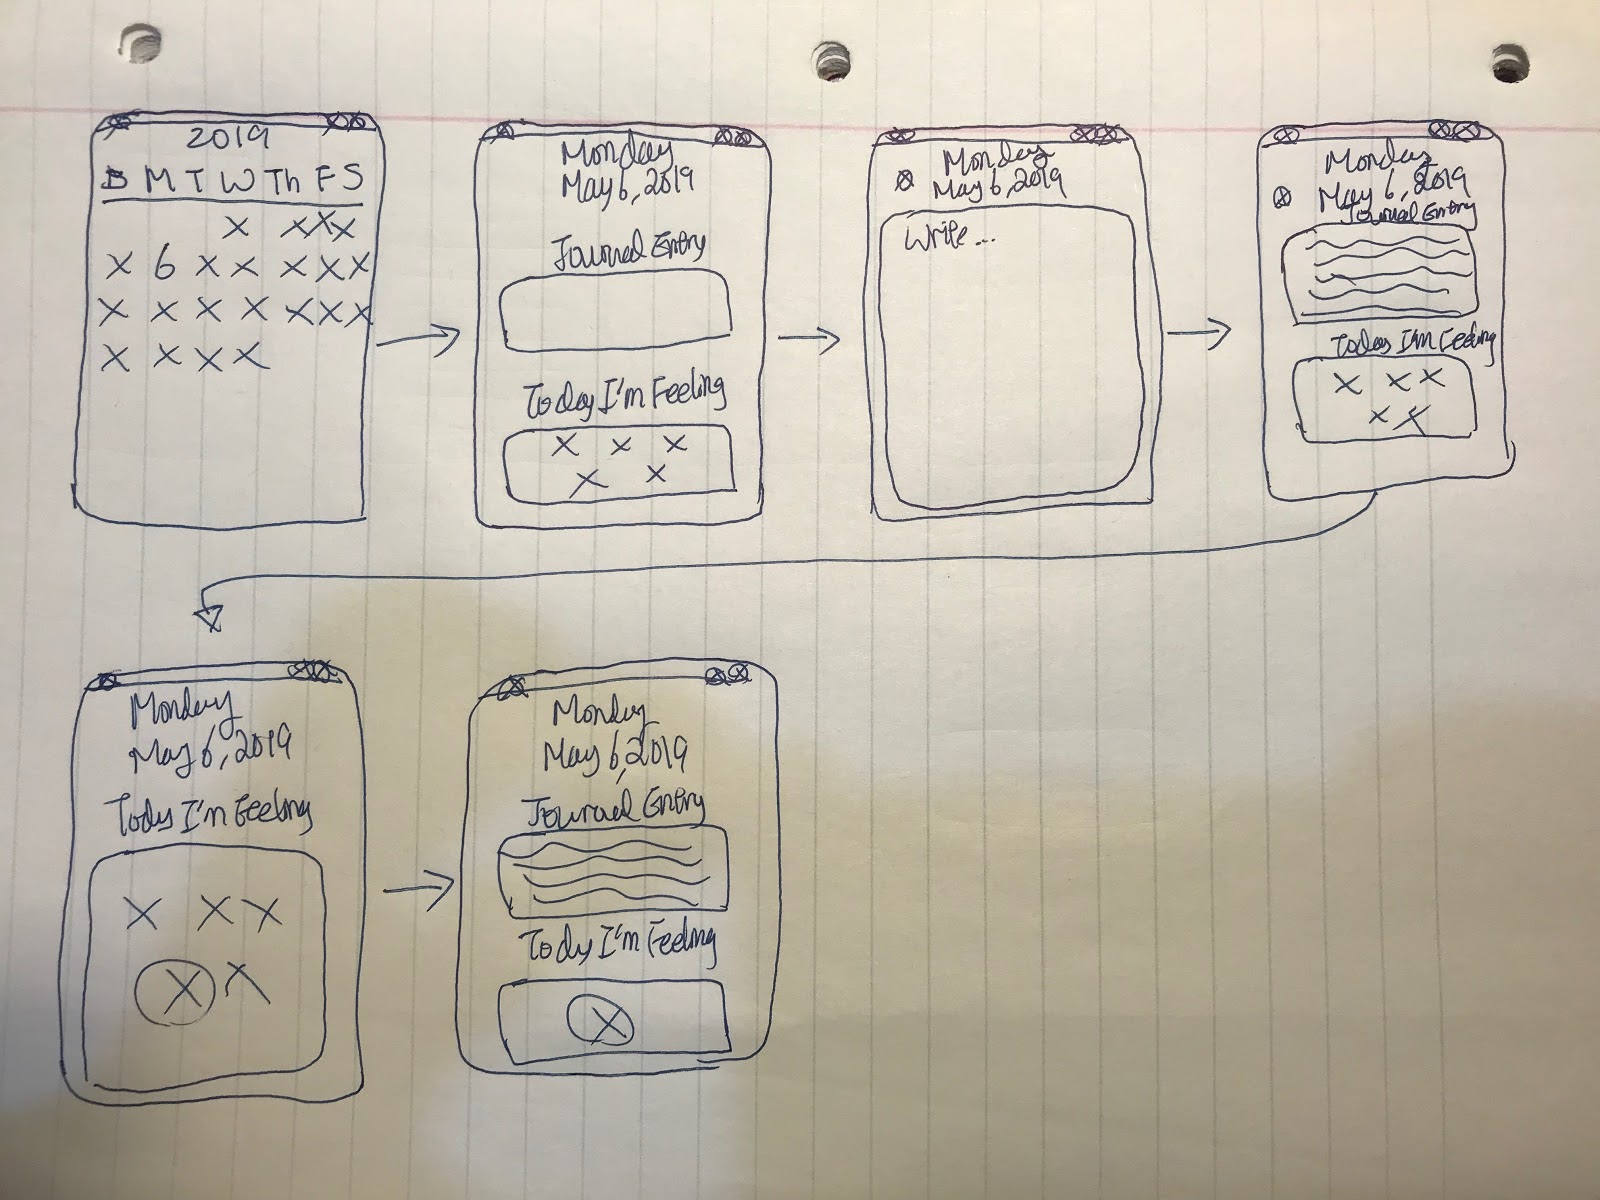 2019
S M T W Th F S
X X X X
X 6 X X X X X
X X X X X X X
X X X X
Monday
May 6, 2019
Journal Entry
Today I'm Feeling
X X X
X X
Monday
May 6, 2019
Write...
Monday
May 6, 2019
Journal Entry
Today I'm Feeling
X X X
X X
Monday
May 6, 2019
Today I'm Feeling
X X X
X X
Monday
May 6, 2019
Journal Entry
Today I'm Feeling
X